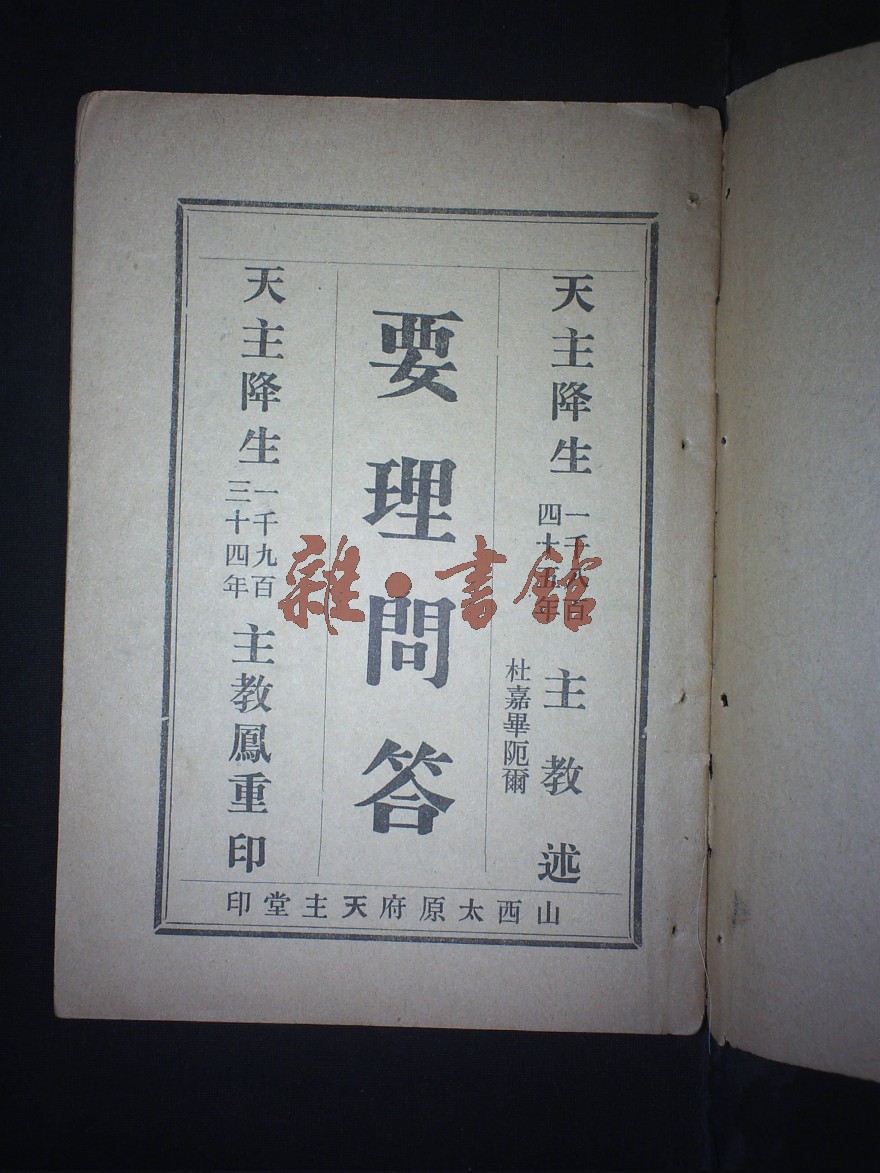 天主降生一千八百四十五年主教杜嘉畢阨爾述
要理問答
天主降生一千九百三十四年主教鳳重印
山西太原府天主堂印
雜·書館